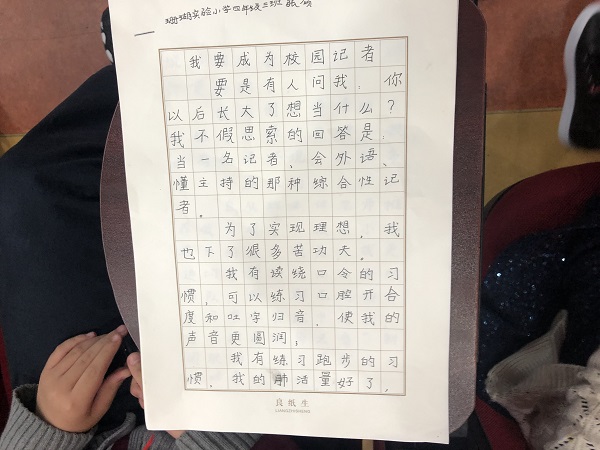 珊瑚实验小学四年级三班 张
我要成为校园记者
要是有人问我：你
以后长大了想当什么？
我不假思索的回答是：
当一名记者、会外语、
懂主持的那种综合性记
者。
为了实现理想，我
也下了很多苦功夫。
我有读绕口令的习
惯，可以练习口腔开合
度和吐字归音，使我的
声音更圆润；
我有练习跑步的习
惯，我的肺活量好了，
良纸生
LIANGZHISHENG